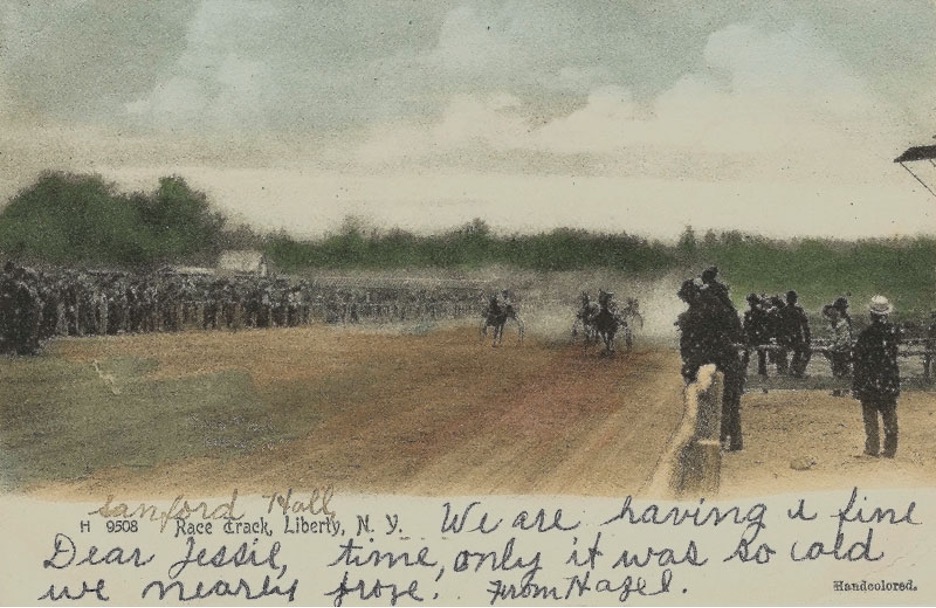 Sanford Hall
H 9508 Race Track, Liberty, N. Y. We are having a fine
Dear Jessie, time, only it was so cold
we nearly froze. From Hazel.
Handcolored.